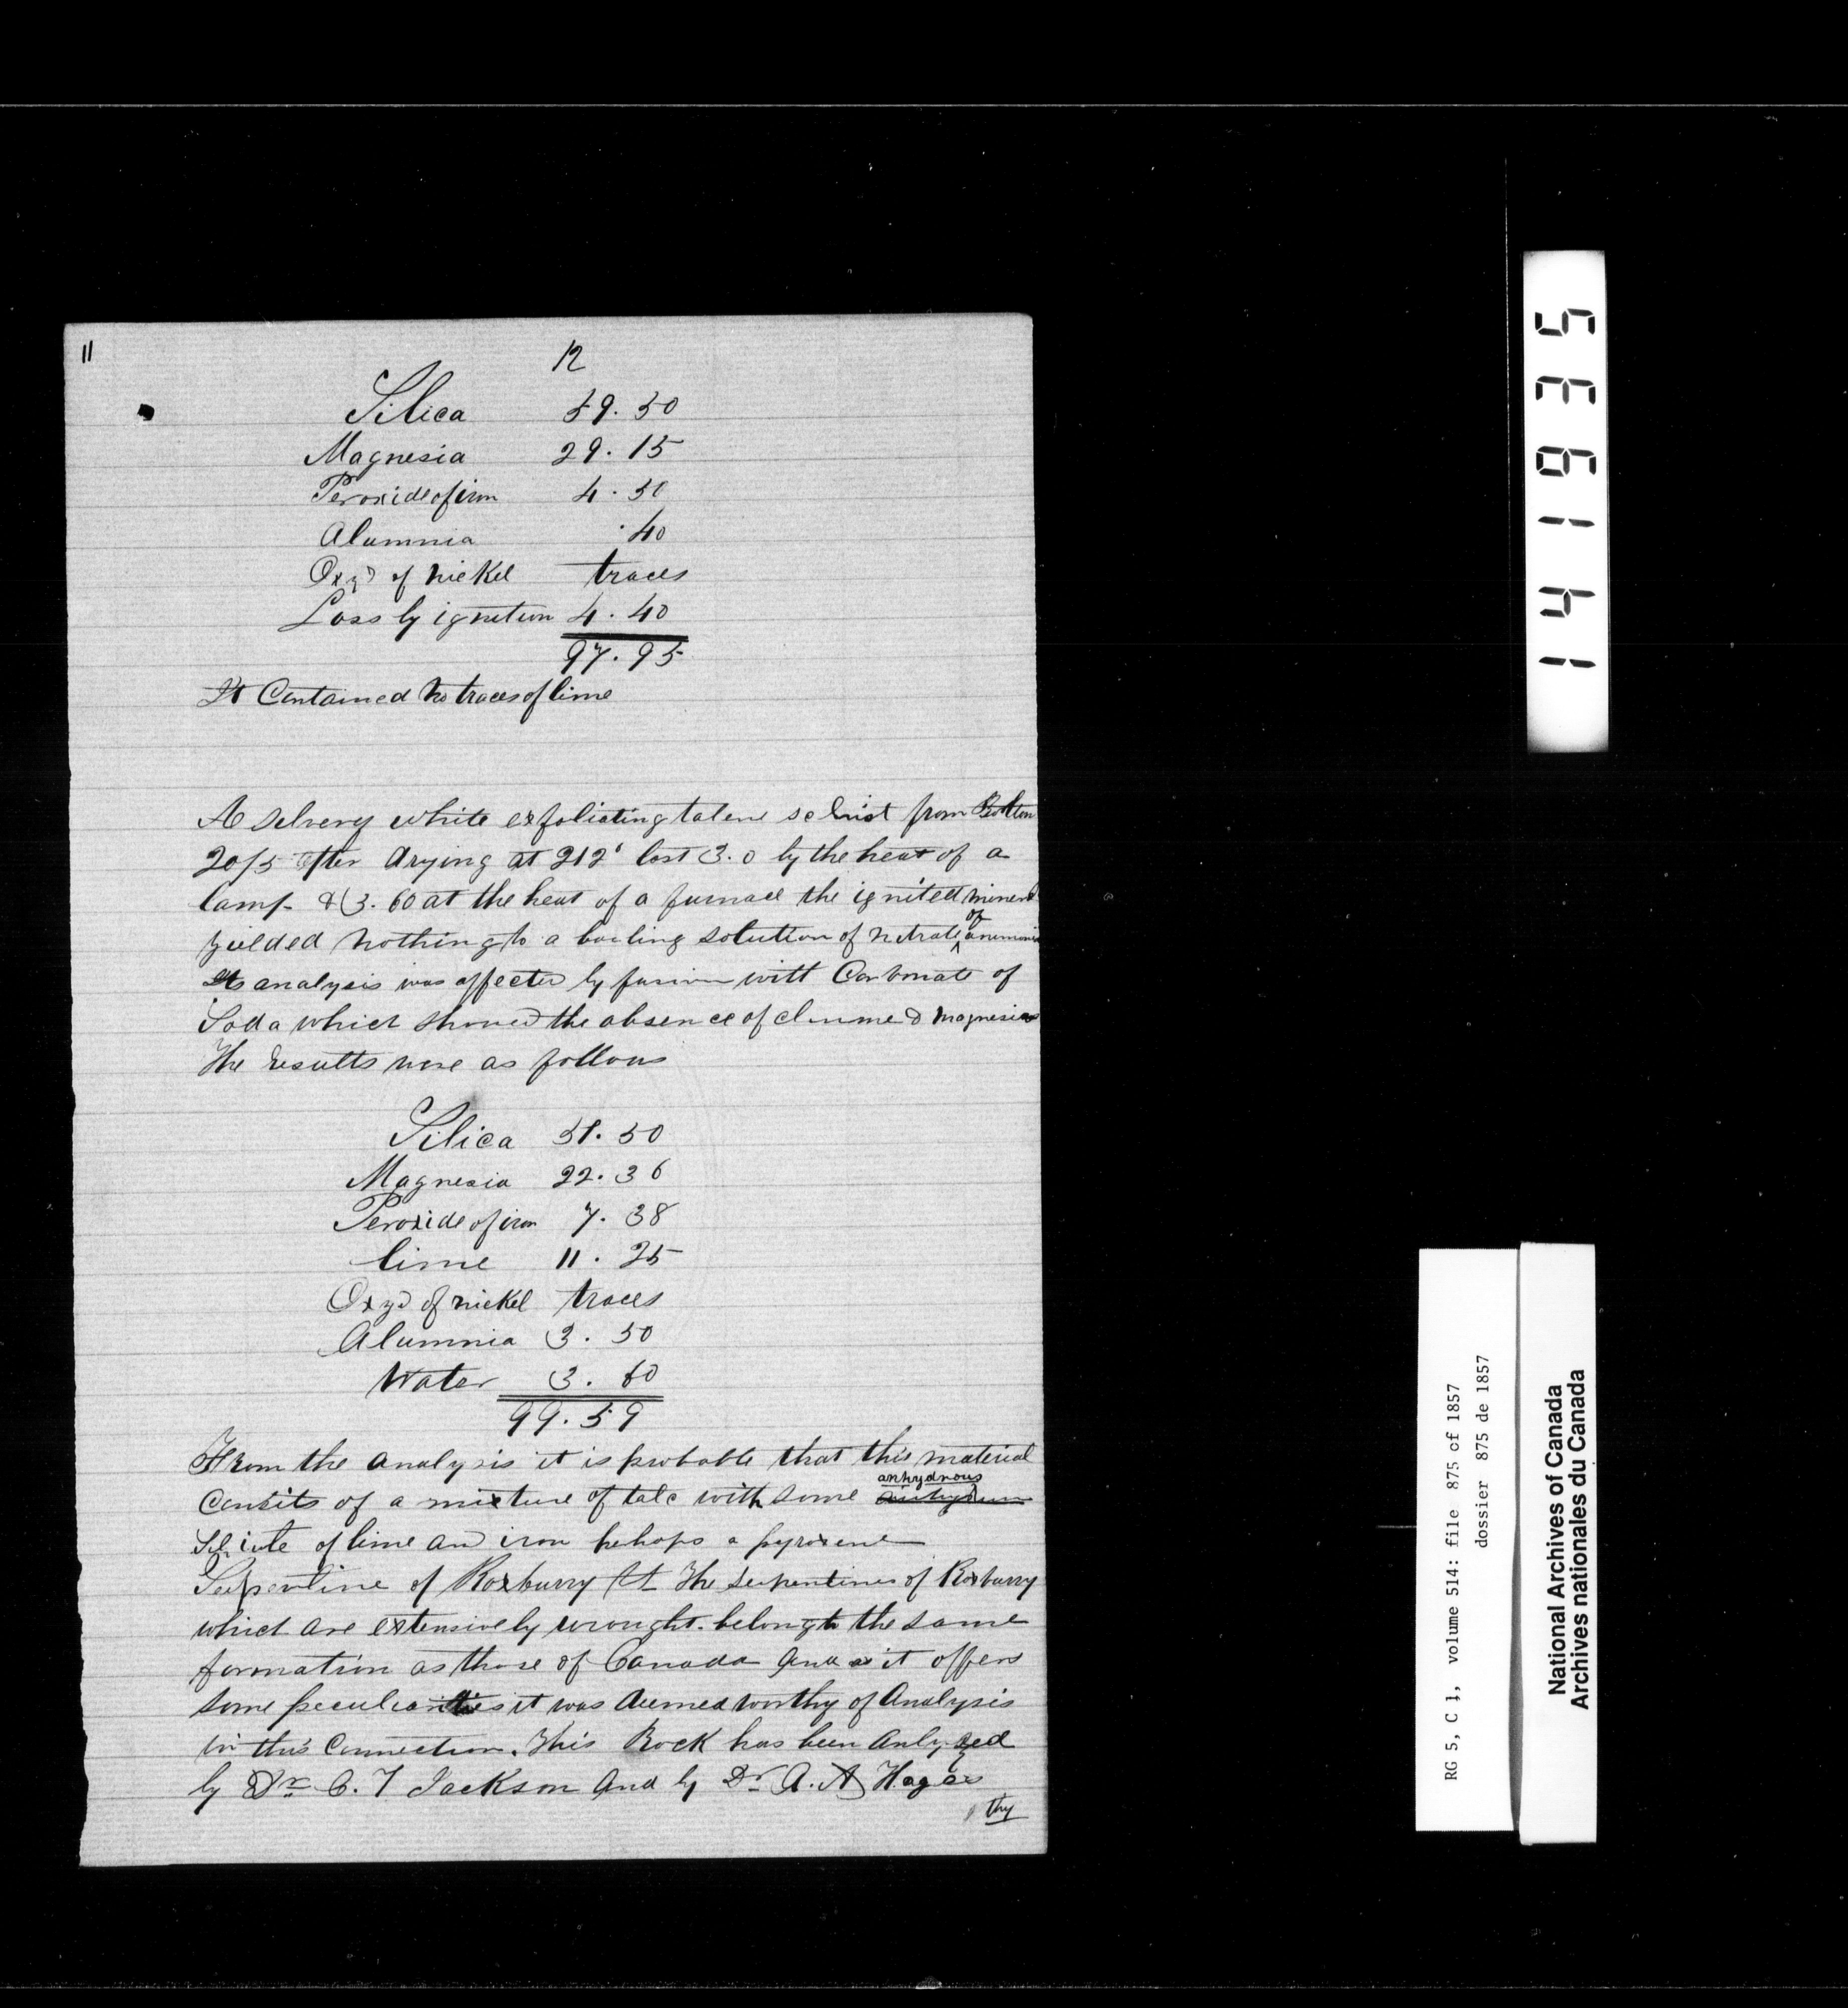 11
12
Silica 59.50
Magnesia 29.15
Peroxide of iron 4.50
Alumnia .40
Oxyd of nickel traces
Loss by ignition 4.40
97.95
It Contained no traces of lime
A silvery white exfoliating talcne schist from Bolton
20/5 after drying at 212° lost 3.0 by the heat of a
lamp & 3.60 at the heat of a furnace the ignited minerl
yielded nothing to a boiling solution of nitrate of ammonia
Its analysis was affected by fusion with Carbonate of
Soda which showed the absence of & magnesia
The results were as follows
Silica 51.50
Magnesia 22.36
Peroxide of iron 7.38
lime 11.25
Oxyd of nickel traces
Alumnia 3.50
Water 3.60
99.59
From the analysis it is probable that this material
Consits of a mixture of talc with some anhydrous
of lime and iron pehaps a pyroxene
Serpentine of Roxburry Vt The serpentines of Roxburry
which are extensively wrought. belong to the same
formation as those of Canada and as it offers
some peculiarities it was deemed worthy of Analysis
in this Connection. This Rock has been anlyzed
by Dr C. T Jackson and by Dr A. A Hages
thy
141935
RG 5, C 1, volume 514: file 875 of 1857
dossier 875 de 1857
National Archives of Canada
Archives nationales du Canada